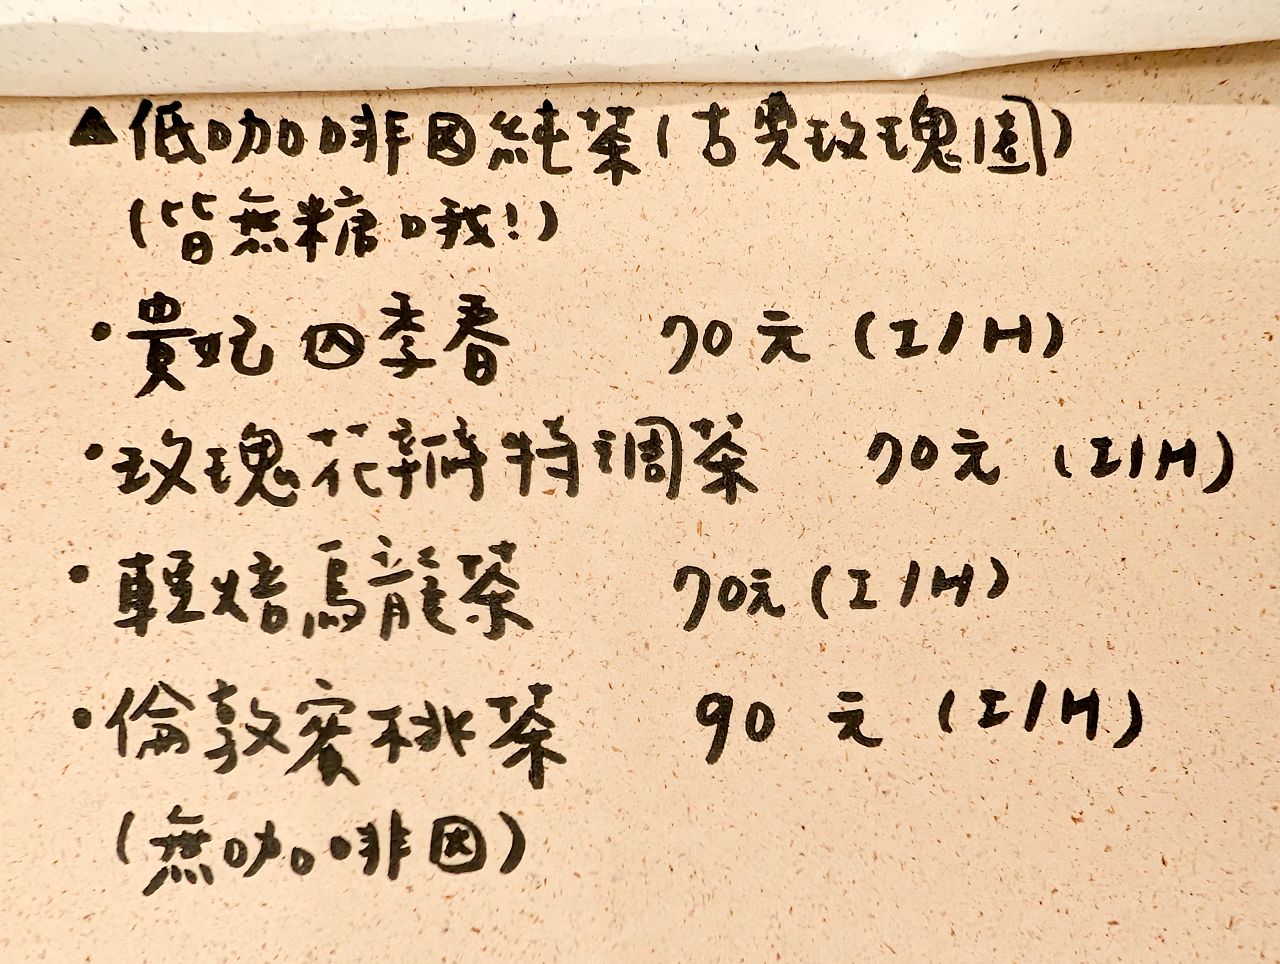 ▲低咖啡因純茶(古奧玫瑰園)
(皆無糖哦!)
·貴妃四季春 70元(I/H)
·玫瑰花瓣特調茶 70元(I/H)
·輕焙烏龍茶 70元(I/H)
·倫敦蜜桃茶 90元(I/H)
(無咖啡因)